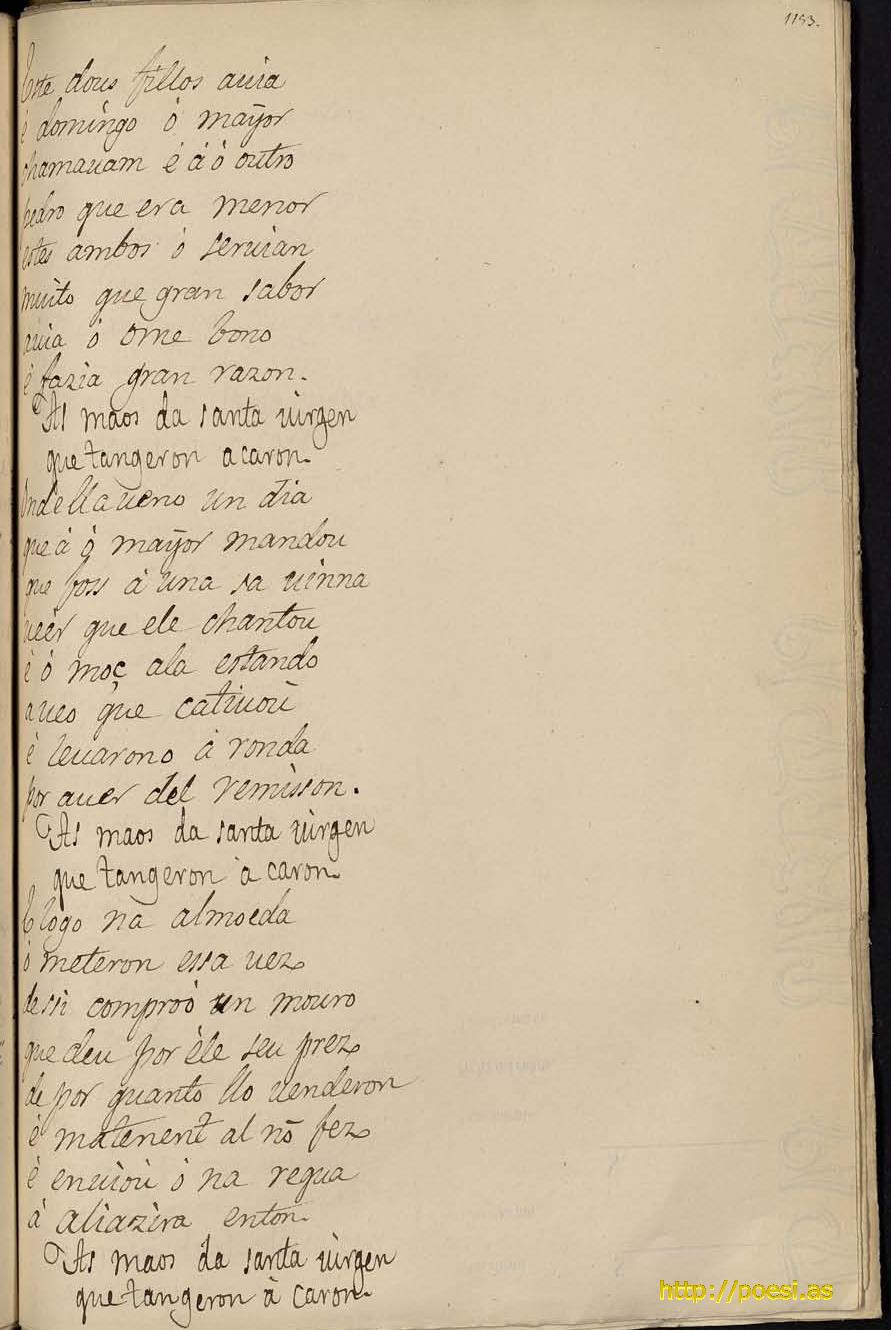 1193.
Este dous fillos auia
é domingo ó maÿor
chamauam é á ó outro
pedro que era menor
estes ambos ó seruian
muito que gran sabor
auia ó ome bono
é fazia gran razon.
As maos da santa uirgen
que tangeron a caron.
Ond ella ueno un dia
que á ó maÿor mandou
que foss á una sa uinna
ueér que ele chantou
é ó moç ala estando
aueo que catiuoù
é leuarono á ronda
por auer del remisson.
As maos da santa uirgen
que tangeron a caron.
E logo na almoeda
ó meteron essa uez
dessi comproó un mouro
que deu por éle seu prez
de por quanto llo uenderon
é mãtenent al nõ fez
é enuioù ó na regua
á aliazira enton.
As maos da santa uirgen
que tangeron á caron.
http://poesi.as